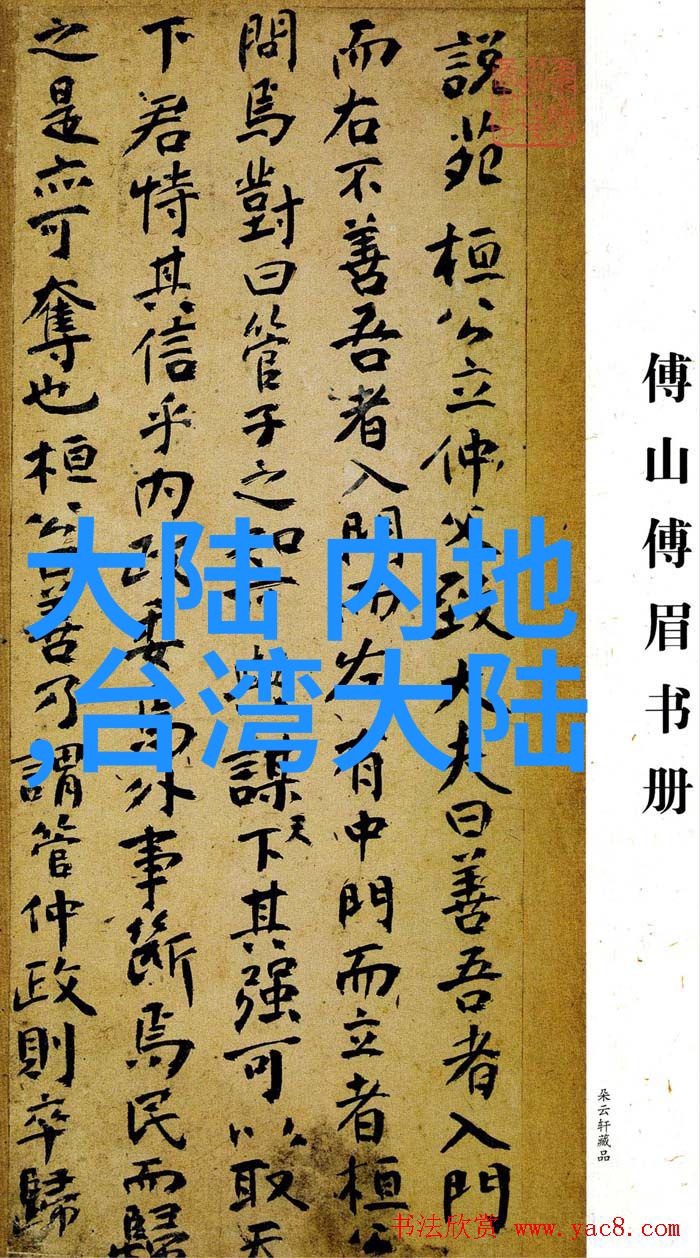 傅山傅眉书册
朵云轩藏品
説苑 桓公立仲父致大夫曰善吾者入門
而右不善吾者入門而左有中門而立者桓公
問焉對曰管子之知可謀天下其强可以取天
下君恃其信乎内政委焉外事斷焉民而歸
之是亦可奪也桓公善乃謂管仲政則卒歸
大陆 内地
,台湾大陆
书法欣赏 www.yac8.com